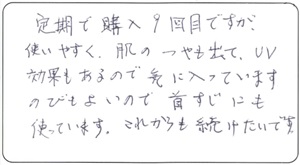 定期で購入9回目ですが、
使いやすく、肌のつやも出て、UV
効果もあるので気に入っています
のびもよいので首すじにも
使っています。これからも続けたいです